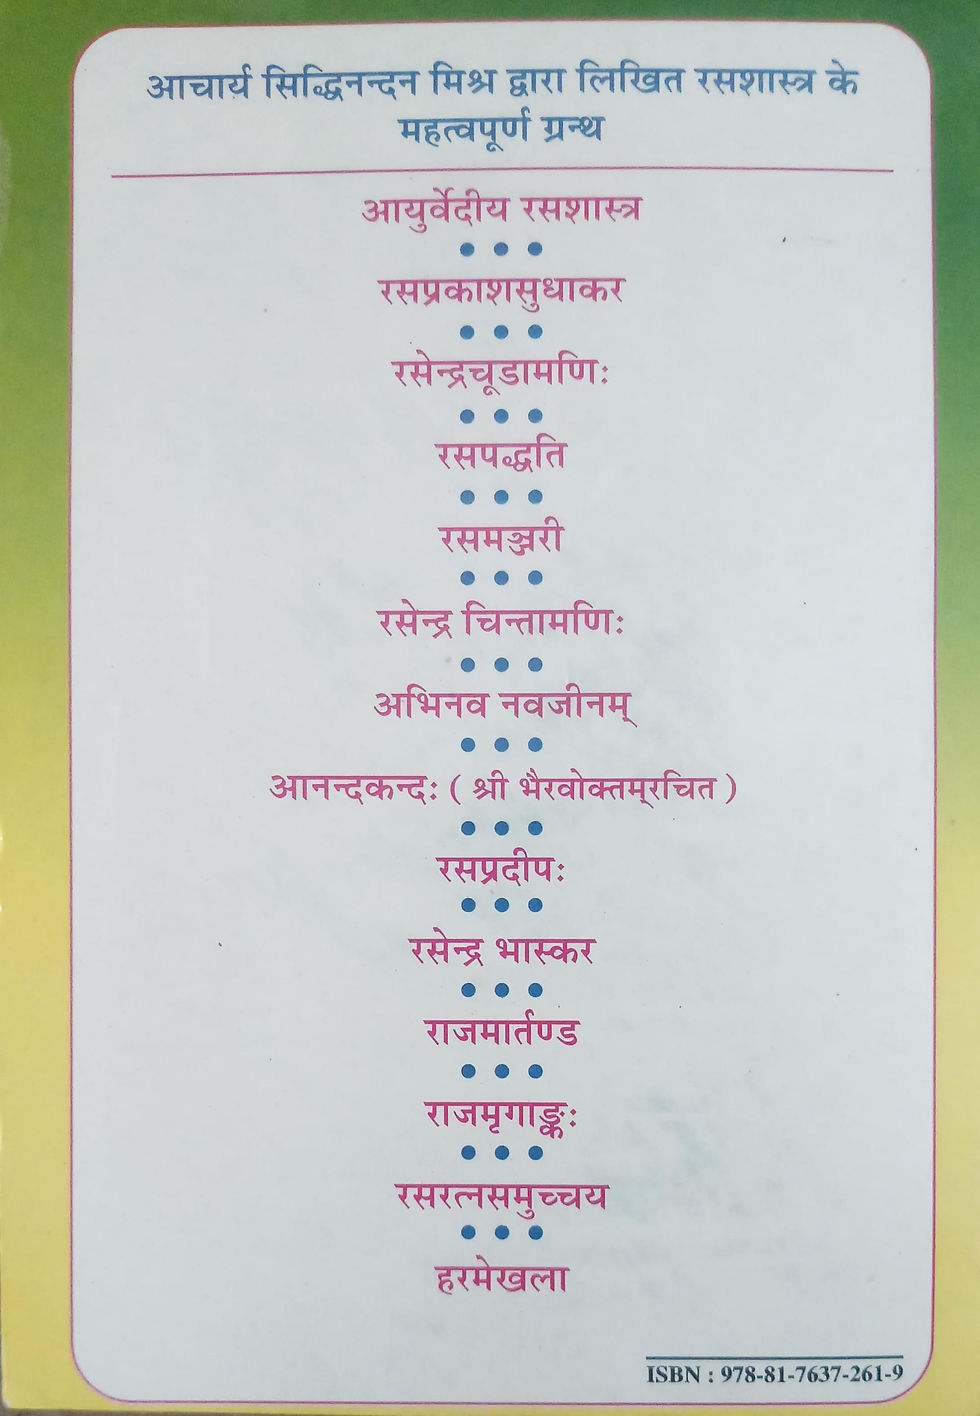 आचार्य सिद्धिनन्दन मिश्र द्वारा लिखित रसशास्त्र के
महत्वपूर्ण ग्रन्थ
आयुर्वेदीय रसशास्त्र
रसप्रकाशसुधाकर
रसेन्द्रचूडामणिः
रसपद्धति
रसमञ्जरी
रसेन्द्र चिन्तामणिः
अभिनव नवजीनम्
आनन्दकन्दः ( श्री भैरवोक्तम्‌रचित )
रसप्रदीपः
रसेन्द्र भास्कर
राजमार्तण्ड
राजमृगाङ्कः
रसरत्नसमुच्चय
हरमेखला
ISBN : 978-81-7637-261-9